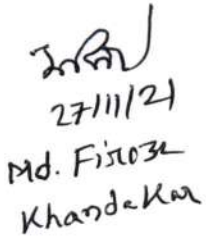 27/11/21
Md. Firoze
Khandakar